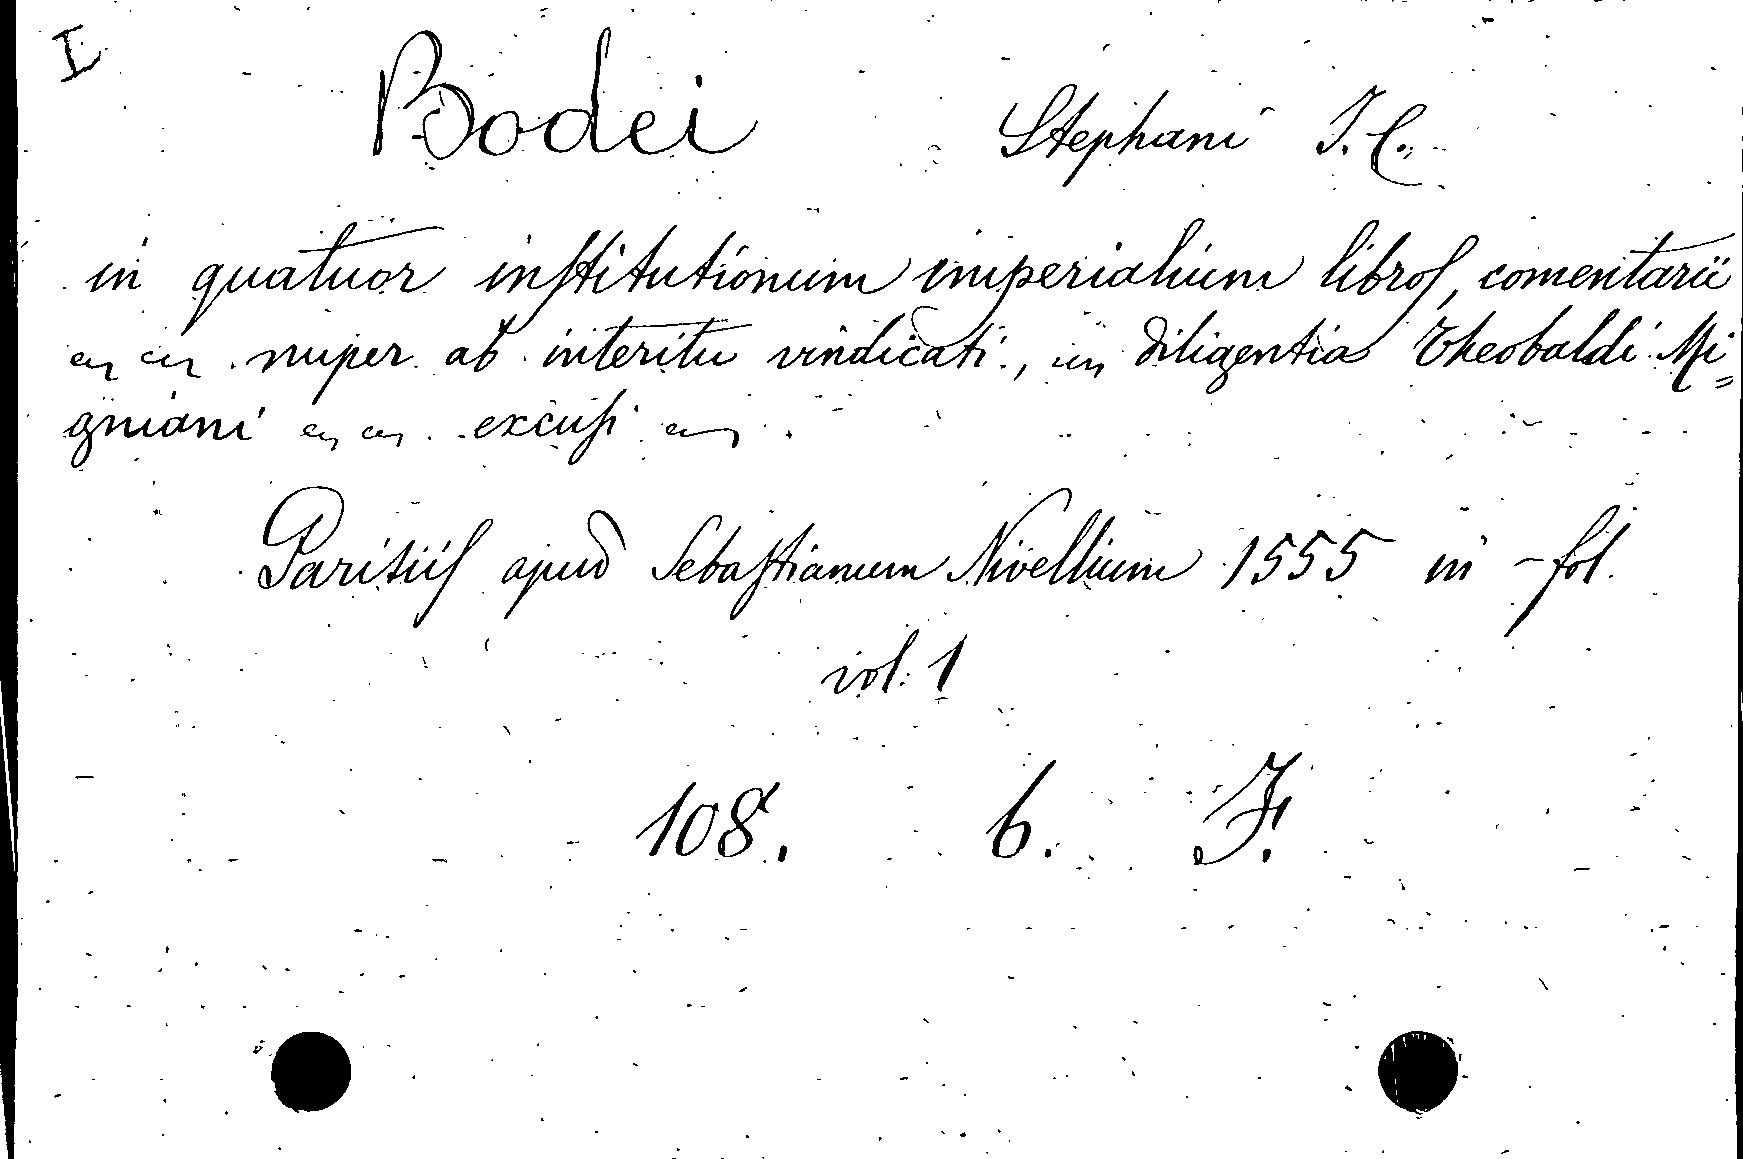 I
Bodei Stephani J. C.,
in quatuor inſtitutionum imperialium libroſ, comentarii
nuper ab interitu vindicati, diligentia Theobaldi Mi=
gniani excuſi
Parisiiſ apud Sebaſtianum Nivellium 1555 in-fol.
vol: 1
108. 6. F.